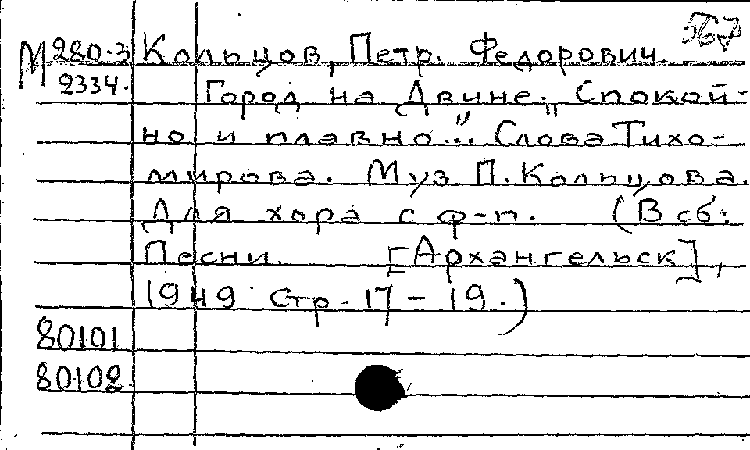 567
М 280-3 Кольцов, Петр. Федорович.
2334. Город на Двине. „Спокой-
но и плавно..." Слова Тихо-
мирова. Муз П. Кольцова.
Для хора с ф-п. (В сб:
Песни [Архангельск],
1949 Стр. 17 - 19.)
80101
80102.